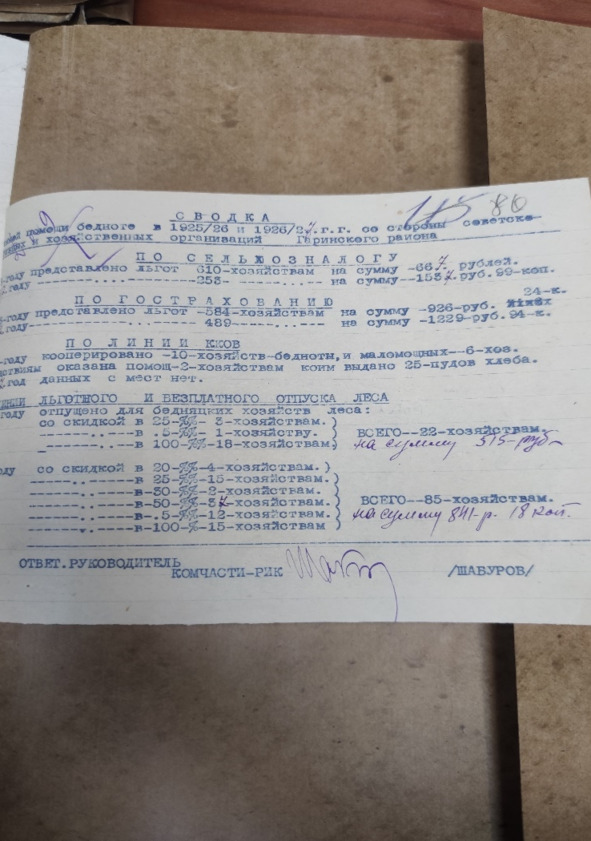 115 80
С В О Д К А
помощи бедноте в 1925/26 и 1926/27 г.г. со стороны советске-
и хозяйственных организаций Гаринского района
ПО СЕЛЬХОЗНАЛОГУ
году представлено льгот 610-хозяйствам на сумму -667 рублей.
году -------------253- -----..--- на сумму--1537 руб. 99-коп.
ПО ГОСТРАХОВАНИЮ 24-к.
-году представлено льгот -584-хозяйствам на сумму -926-руб.
году------------- 489------...--- на сумму -1229-руб. 94-к.
ПО ЛИНИИ КЖОВ
-году кооперировано -10-хозяйств-бедноты, и маломощных--6-хоз.
оказана помощ-2-хозяйствам коим выдано 25-пудов хлеба.
год данных с мест нет.
ЛЬГОТНОГО И БЕЗПЛАТНОГО ОТПУСКА ЛЕСА
году отпущено для бедняцких хозяйств леса:
со скидкой в 25-%%- 3-хозяйствам.)
------..--в -5-%%- 1-хозяйству. ) ВСЕГО--22-хозяйствам.
------..--в 100-%%-18-хозяйствам) на сумму 315-руб-
ду со скидкой в 20-%%-4-хозяйствам.)
------..-----в 25-%%-15-хозяйствам.)
------..-----в-30-%%-2-хозяйствам.)
------..-----в-50-%%-37-хозяйствам.) ВСЕГО--85-хозяйствам.
------..-----в-.5-%%-12-хозяйствам.) на сумму 841-р. 18 коп.
------..-----в-100-%-15-хозяйствам)
ОТВЕТ.РУКОВОДИТЕЛЬ
КОМЧАСТИ-РИК /ШАВУРОВ/